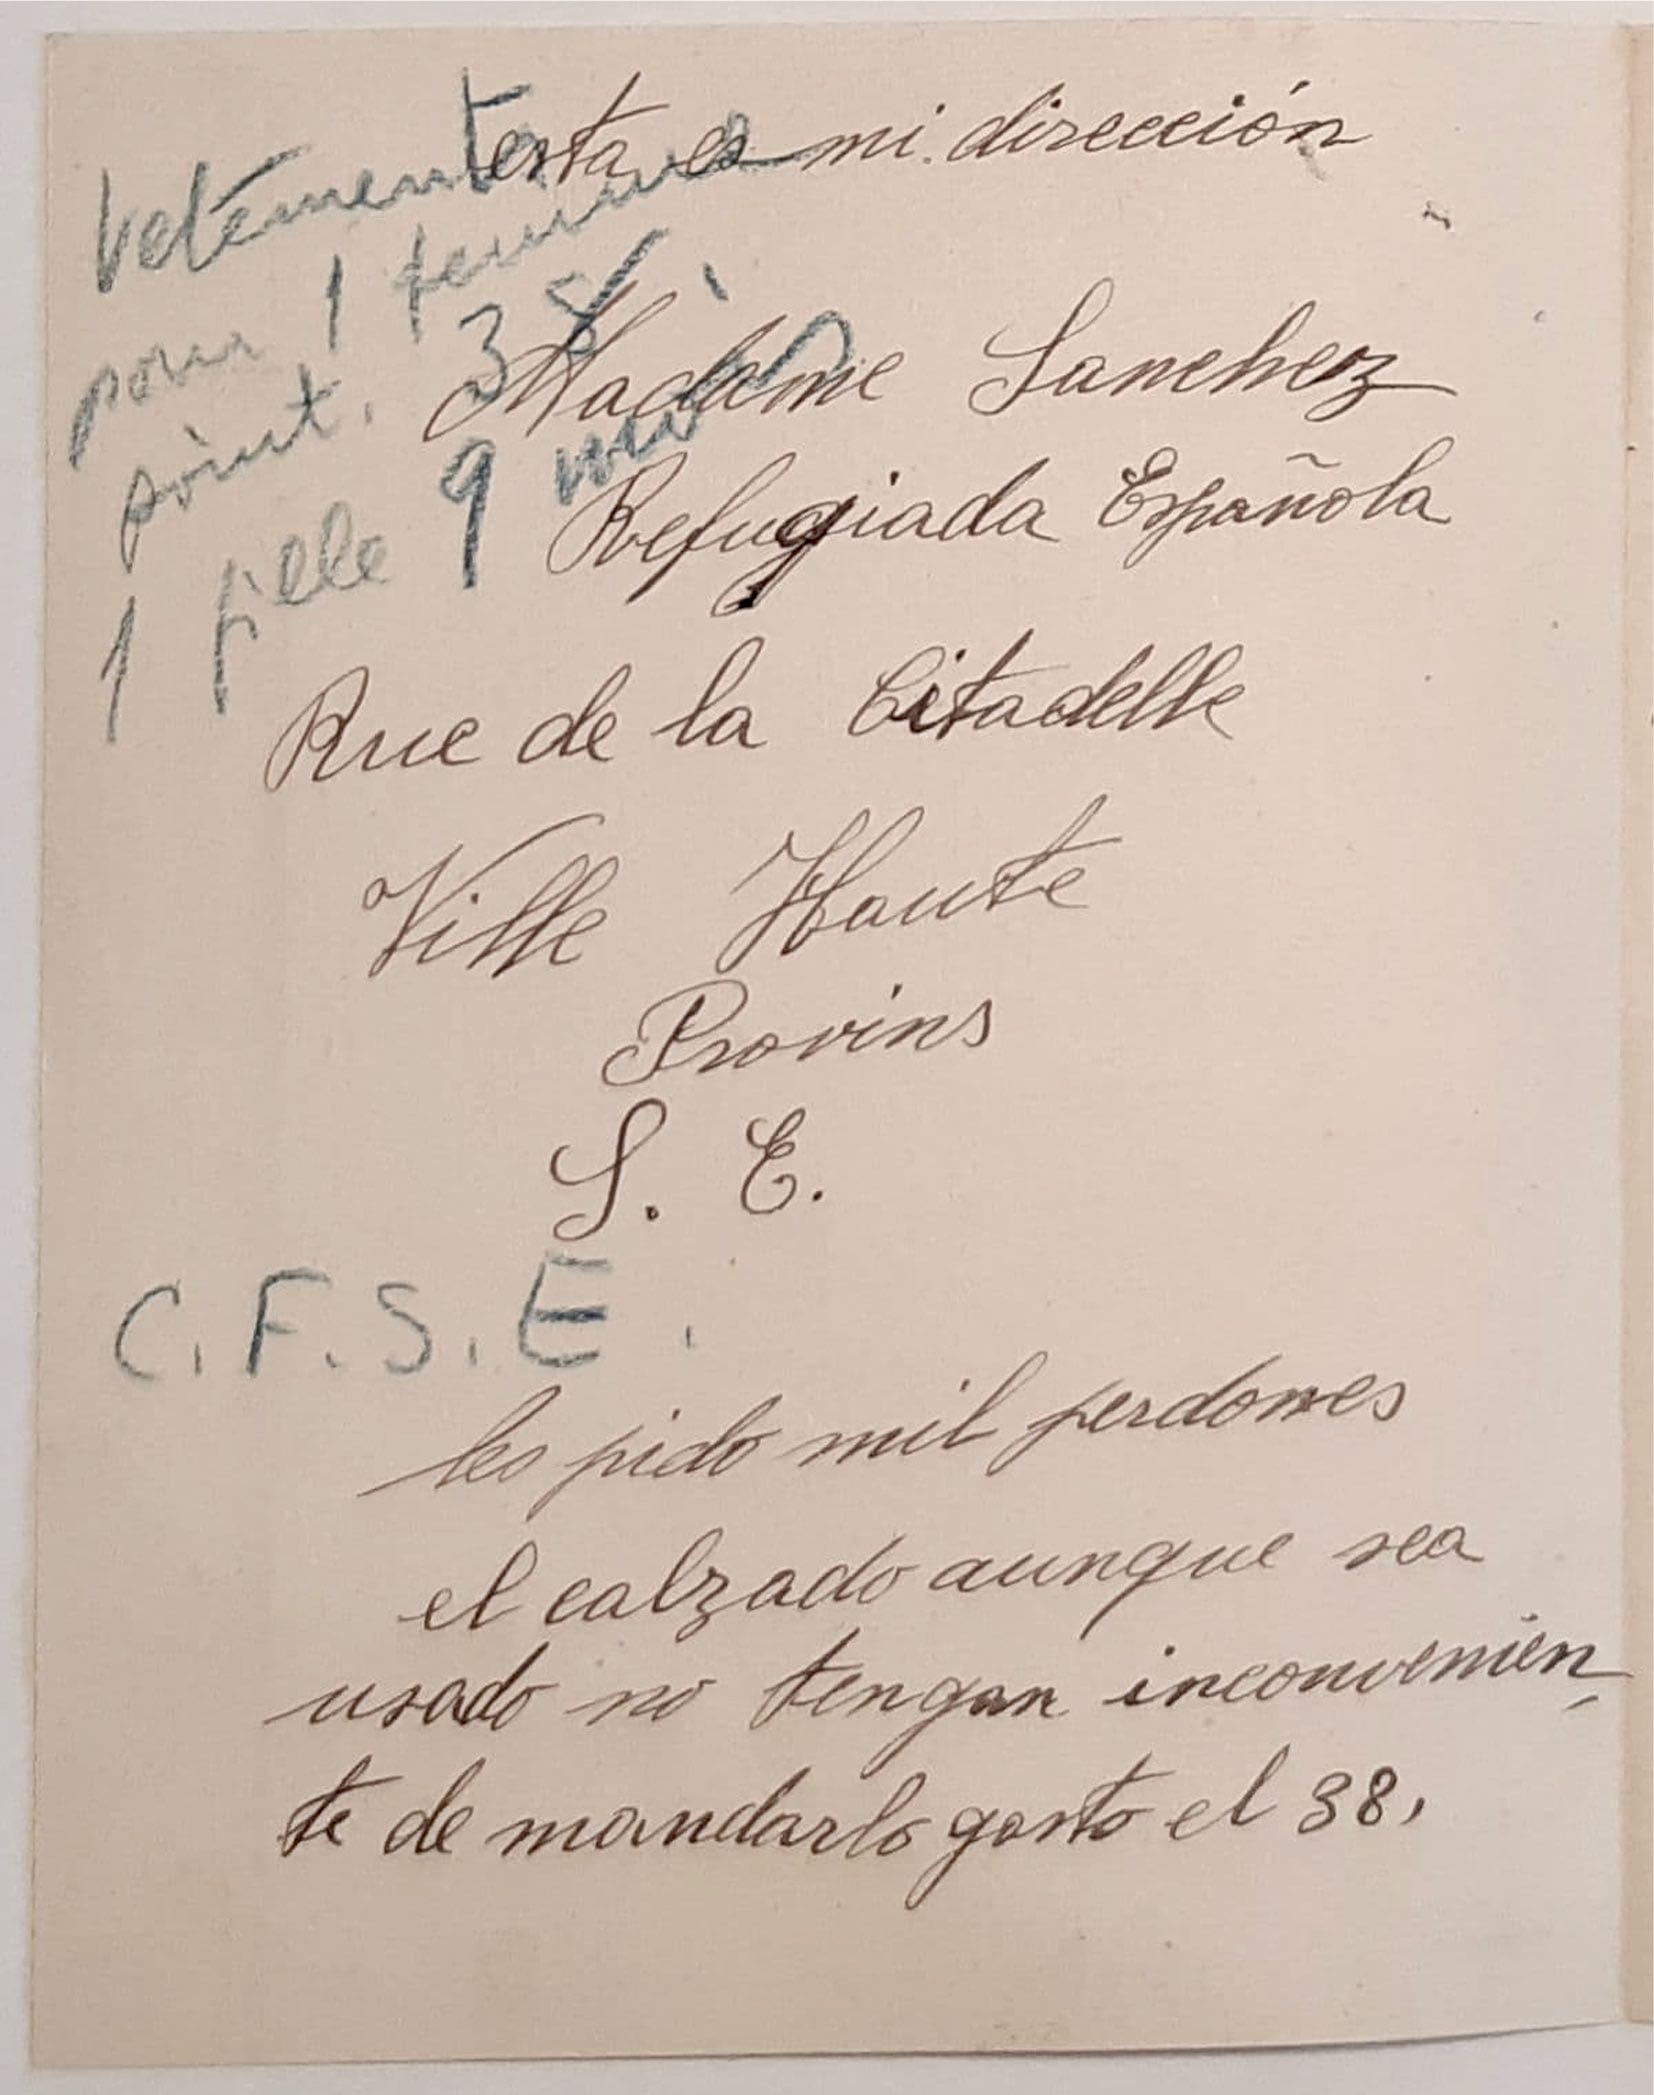 esta es mi dirección
Madame Sanchez
Refugiada Española
Rue de la Citadelle
Ville Haute
Provins
S. E.
les pido mil perdones
el calzado aunque sea
usado no tengan inconvenien
te de mandarlo gasto el 38,
Vetements
pour 1 femme
point. 38,
1 fille 9 mois
C.F.S.E.